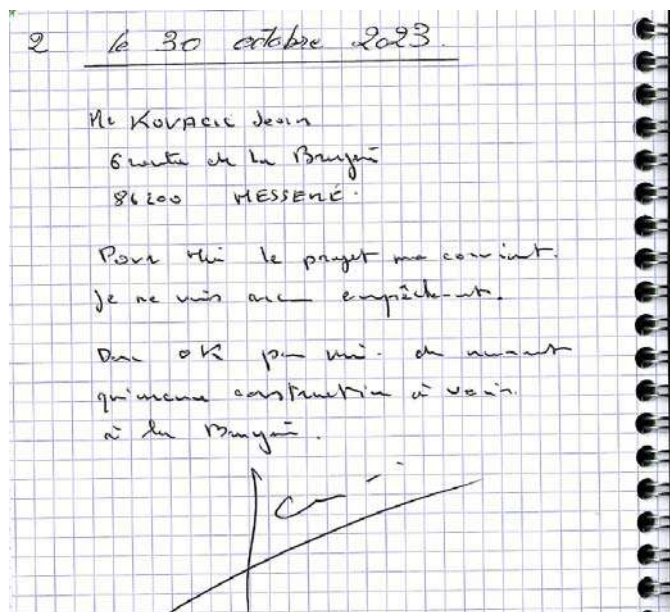 2 le 30 octobre 2023.
Mr KOVACIC Jean
6 route de la Bruyère
86200 MESSEMÉ.
Pour moi le projet me convient.
Je ne vois aucun empêchement.
Donc OK pour moi. du moment
qu'aucune construction à venir
à la Bruyère.